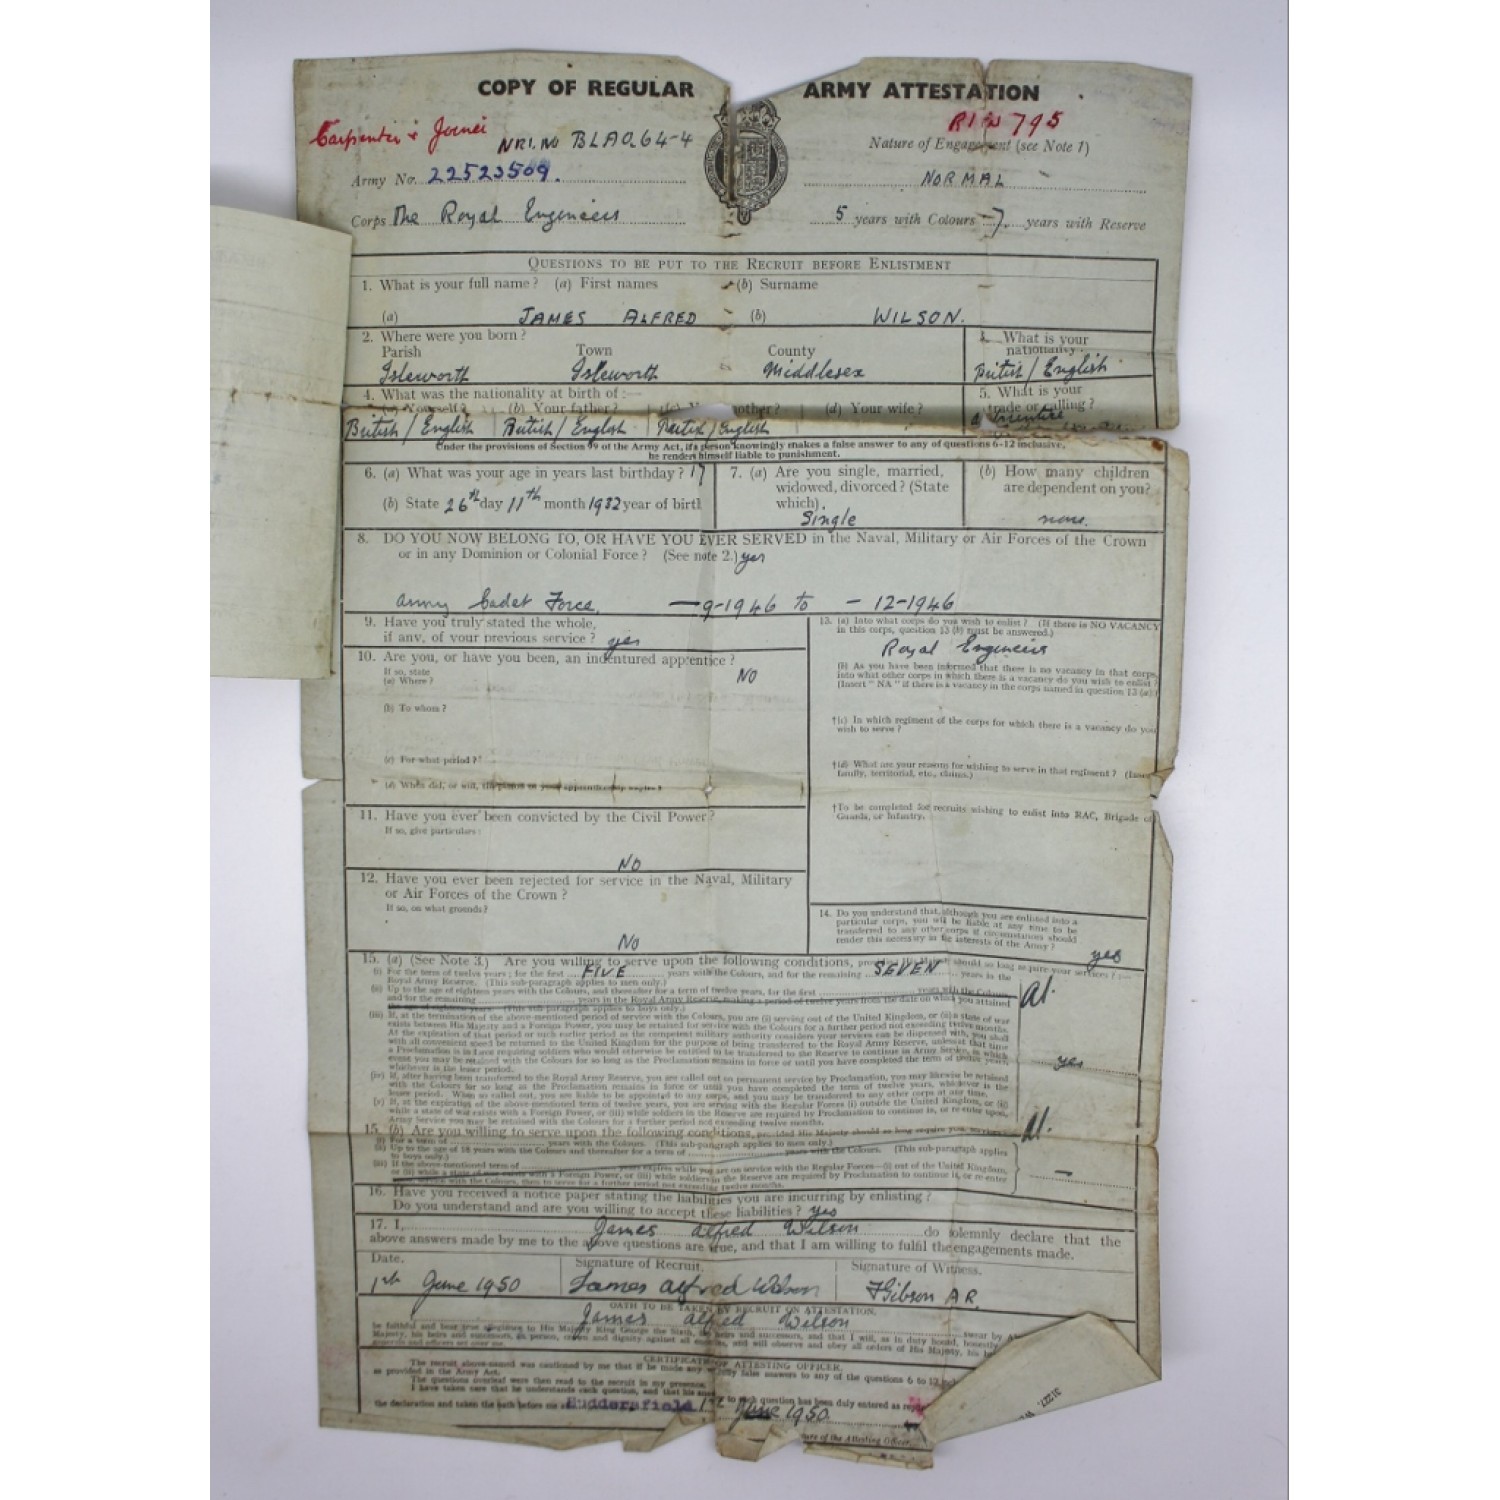 COPY OF REGULAR ARMY ATTESTATION
Carpenter & Joiner
NRI. No BLAO.64-4
795
Nature of Engagement (see Note 1)
Army No. 22523509.
NORMAL
Corps The Royal Engineers
5 years with Colours 7 years with Reserve
QUESTIONS TO BE PUT TO THE RECRUIT BEFORE ENLISTMENT
1. What is your full name? (a) First names (b) Surname
(a) JAMES ALFRED (b) WILSON.
2. Where were you born?
Parish Town County
Isleworth Isleworth Middlesex
What is your
nationality
British / English
4. What was the nationality at birth of:—
(a) Yourself? (b) Your father? (d) Your wife?
British / English British / English British / English
5. What is your
trade or calling?
Under the provisions of Section 99 of the Army Act, if a person knowingly makes a false answer to any of questions 6-12 inclusive,
he renders himself liable to punishment.
6. (a) What was your age in years last birthday? 17
(b) State 26th day 11th month 1932 year of birth
7. (a) Are you single, married,
widowed, divorced? (State
which).
Single
(b) How many children
are dependent on you?
none.
8. DO YOU NOW BELONG TO, OR HAVE YOU EVER SERVED in the Naval, Military or Air Forces of the Crown
or in any Dominion or Colonial Force? (See note 2.) yes
Army Cadet Force, — 9-1946 to — 12-1946
9. Have you truly stated the whole,
if any, of your previous service? yes
10. Are you, or have you been, an indentured apprentice?
If so, state
(a) Where?
NO
(b) To whom?
(c) For what period?
(d) When did, or will, the period of your apprenticeship expire?
11. Have you ever been convicted by the Civil Power?
If so, give particulars:
NO
12. Have you ever been rejected for service in the Naval, Military
or Air Forces of the Crown?
If so, on what grounds?
NO
13. (a) Into what corps do you wish to enlist? (If there is NO VACANCY
in this corps, question 13 (b) must be answered.)
Royal Engineers
(b) As you have been informed that there is no vacancy in that corps,
into what other corps in which there is a vacancy do you wish to enlist?
(Insert "NA" if there is a vacancy in the corps named in question 13 (a))
†(c) In which regiment of the corps for which there is a vacancy do you
wish to serve?
†(d) What are your reasons for wishing to serve in that regiment?
family, territorial, etc., claims.)
†To be completed for recruits wishing to enlist into RAC, Brigade of
Guards, or Infantry.
14. Do you understand that although you are enlisted into a
particular corps, you will be liable at any time to be
transferred to any other corps if circumstances should
render this necessary in the interests of the Army? yes
15. (a) (See Note 3.) Are you willing to serve upon the following conditions, provided His Majesty should so long require your services?:—
(i) For the term of twelve years; for the first FIVE years with the Colours, and for the remaining SEVEN years in the
Royal Army Reserve. (This sub-paragraph applies to men only.)
(ii) Up to the age of eighteen years with the Colours, and thereafter for a term of twelve years, for the first years with the Colours,
and for the remaining years in the Royal Army Reserve, making a period of twelve years from the date on which you attained
the age of eighteen years. (This sub-paragraph applies to boys only.)
(iii) If, at the termination of the above-mentioned period of service with the Colours, you are (i) serving out of the United Kingdom, or (ii) a state of war
exists between His Majesty and a Foreign Power, you may be retained for service with the Colours for a further period not exceeding twelve months.
At the expiration of that period or such earlier period as the competent military authority considers your services can be dispensed with, you shall
with all convenient speed be returned to the United Kingdom for the purpose of being transferred to the Royal Army Reserve, unless at that time
a Proclamation is in force requiring soldiers who would otherwise be entitled to be transferred to the Reserve to continue in Army Service, in which
event you may be retained with the Colours for so long as the Proclamation remains in force or until you have completed the term of twelve years,
whichever is the lesser period.
yes
(iv) If, after having been transferred to the Royal Army Reserve, you are called out on permanent service by Proclamation, you may likewise be retained
with the Colours for so long as the Proclamation remains in force or until you have completed the term of twelve years, whichever is the
lesser period. When so called out, you are liable to be appointed to any corps, and you may be transferred to any other corps at any time.
(v) If, at the expiration of the above-mentioned term of twelve years, you are serving with the Regular Forces (i) outside the United Kingdom, or (ii)
while a state of war exists with a Foreign Power, or (iii) while soldiers in the Reserve are required by Proclamation to continue in, or re-enter upon,
Army Service you may be retained with the Colours for a further period not exceeding twelve months.
15. (b) Are you willing to serve upon the following conditions, provided His Majesty should so long require your services
(i) For a term of years with the Colours. (This sub-paragraph applies to men only.)
(ii) Up to the age of 18 years with the Colours and thereafter for a term of years with the Colours. (This sub-paragraph applies
to boys only.)
(iii) If the above-mentioned term of years expires while you are on service with the Regular Forces—(i) out of the United Kingdom,
or (ii) while a state of war exists with a Foreign Power, or (iii) while soldiers in the Reserve are required by Proclamation to continue in, or re-enter
service with the Colours, then to serve for a further period not exceeding twelve months.
16. Have you received a notice paper stating the liabilities you are incurring by enlisting?
Do you understand and are you willing to accept these liabilities? yes
17. I, James Alfred Wilson do solemnly declare that the
above answers made by me to the above questions are true, and that I am willing to fulfil the engagements made.
Date. Signature of Recruit. Signature of Witness.
1st June 1950 James Alfred Wilson Gibson
OATH TO BE TAKEN BY RECRUIT ON ATTESTATION.
James Alfred Wilson swear by
be faithful and bear true allegiance to His Majesty King George the Sixth, his heirs and successors, and that I will, as in duty bound, honestly
Majesty, his heirs and successors, in person, crown and dignity against all enemies, and will observe and obey all orders of His Majesty, his
generals and officers set over me.
CERTIFICATE OF ATTESTING OFFICER.
The recruit above-named was cautioned by me that if he made any false answer to any of the questions 6 to 12
as provided in the Army Act.
The questions overleaf were then read to the recruit in my presence.
I have taken care that he understands each question, and that his to each question has been duly entered as
the declaration and taken the oath before me Huddersfield 1st June 1950.
of the Attesting Officer